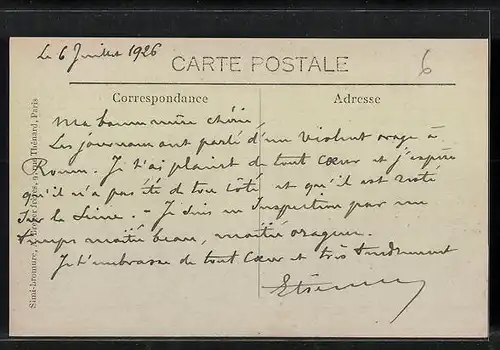 Le 6 Juillet 1926
CARTE POSTALE
6
Correspondance
Adresse
Ma bonne mère chérie,
Les journaux ont parlé d'un violent orage à
Rouen. Je t'ai plaint de tout cœur et j'espère
qu'il n'a pas été de ton côté et qu'il est resté
sur la Seine. - Je suis en Inspection par un
temps moitié beau, moitié orageux.
Je t'embrasse de tout cœur et très tendrement
Etienne
Simi-bromure, frères, rue Thénard, Paris